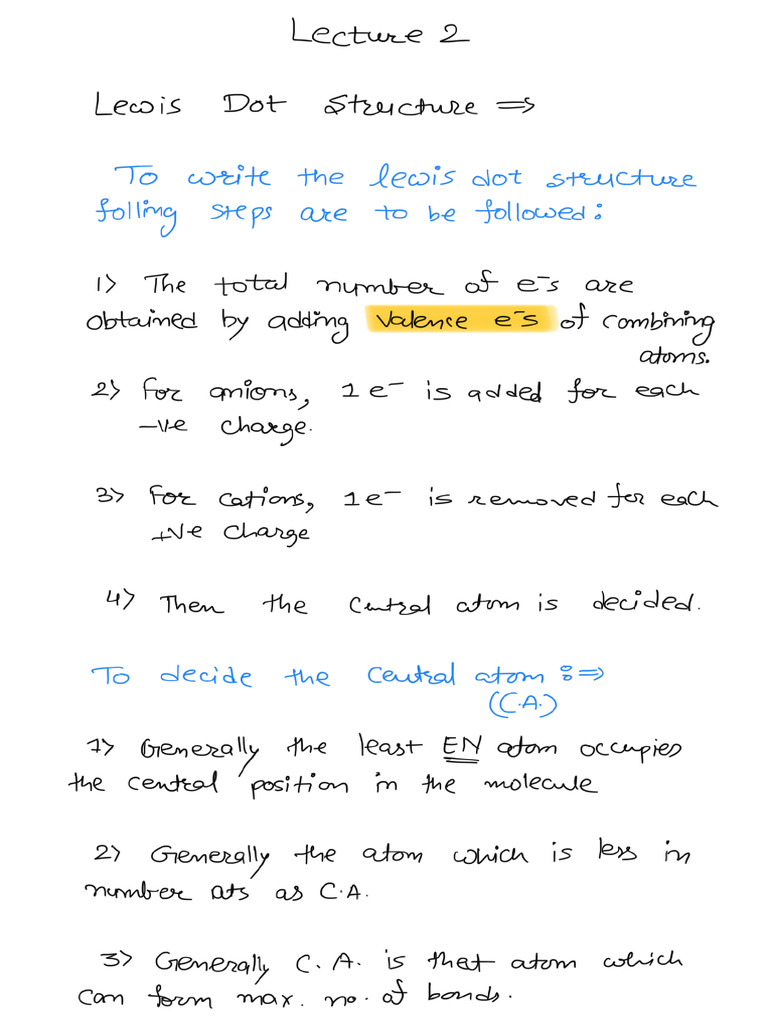 Lecture 2
Lewis Dot Structure ⇒
To write the lewis dot structure
folling steps are to be followed:
1> The total number of e⁻s are
obtained by adding valence e⁻s of combining
atoms.
2> For anions, 1e⁻ is added for each
-ve charge.
3> For cations, 1e⁻ is removed for each
+ve charge
4> Then the central atom is decided.
To decide the central atom :⇒
(C.A.)
1> Generally the least EN atom occupies
the central position in the molecule
2> Generally the atom which is less in
number ats as C.A.
3> Generally C.A. is that atom which
can form max. no. of bonds.